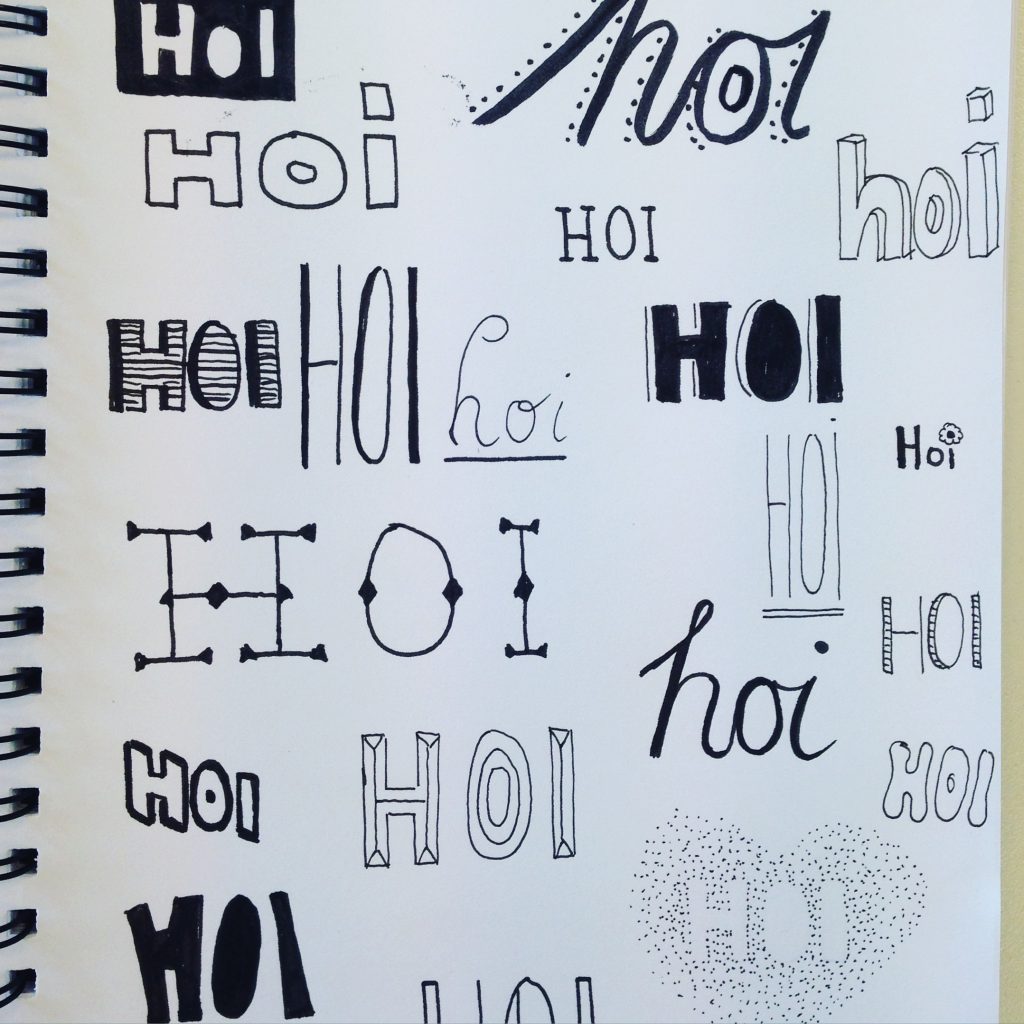 HOI
hoi
HOi
hoi
HOI
HOI
HOI
hoi
HOI
Hoi
HOi
HOI
HOI
hoi
HOI
HOI
HOI
HOI
HOI
HOI